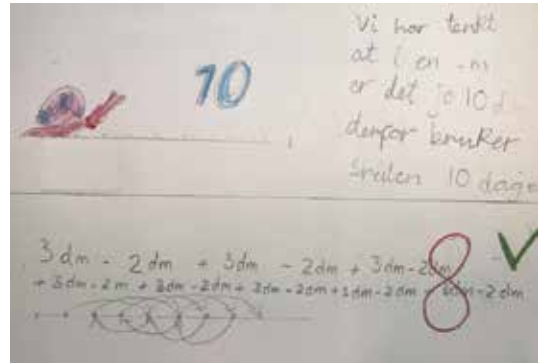 10
Vi har tenkt
at i en m
er det jo 10 d
derfor bruker
sneilen 10 dage
3 dm - 2 dm + 3 dm - 2 dm + 3 dm - 2 dm
+ 3 dm - 2 m + 3 dm - 2 dm + 3 dm - 2 dm + 3 dm - 2 dm + 3 dm - 2 dm
8